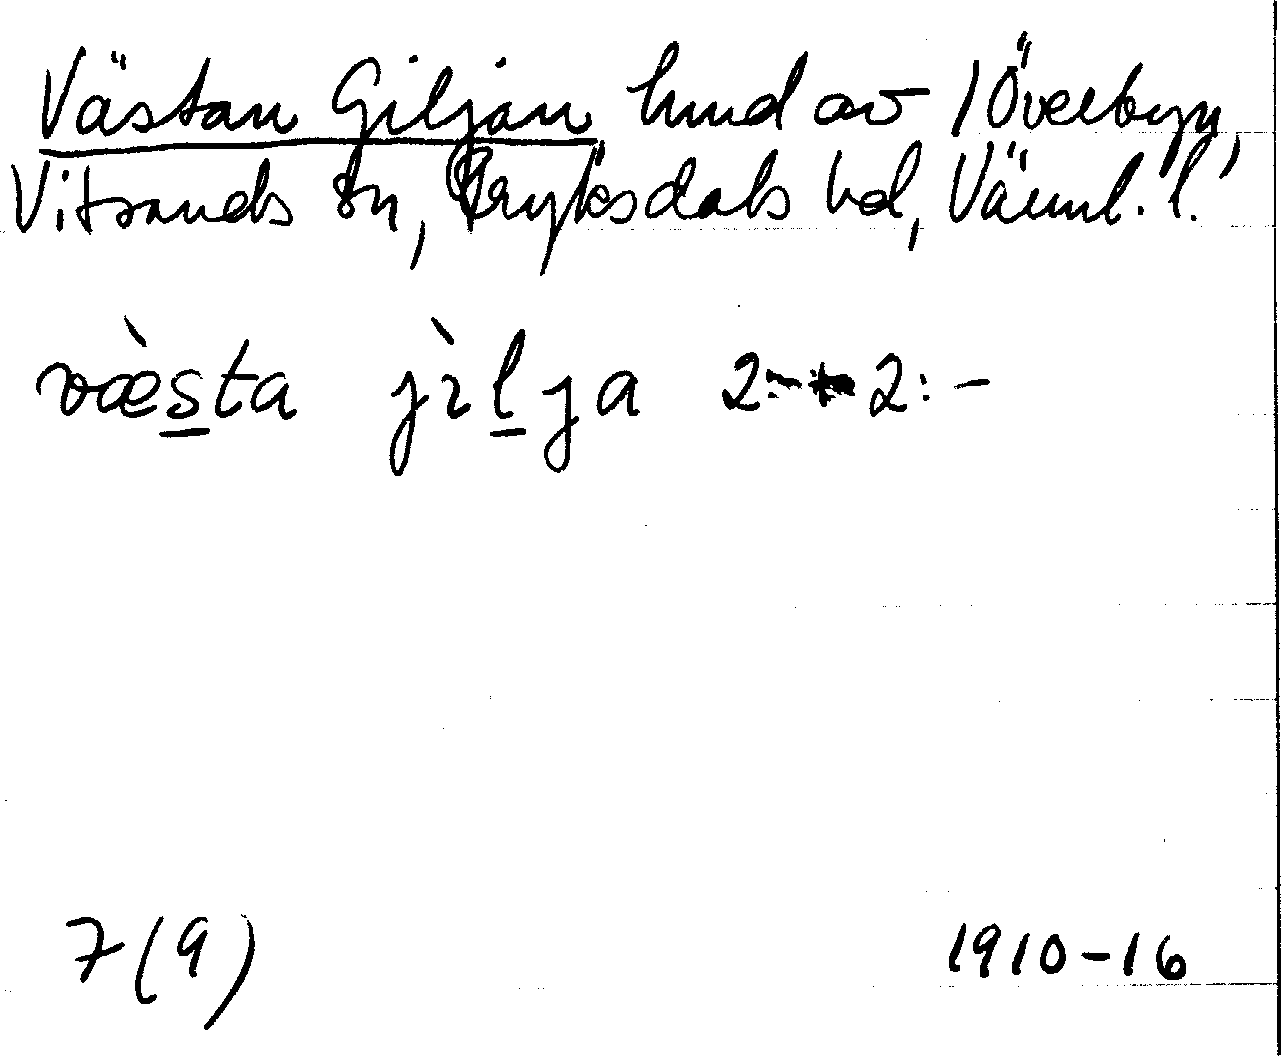 Västan Giljan hmd av 1 Överbyn,
Vitsands sn, Fryksdals hd, Värml. l.
væ̀s̲ta jìl̲ja 2:- 2:-
7(9) 1910-16